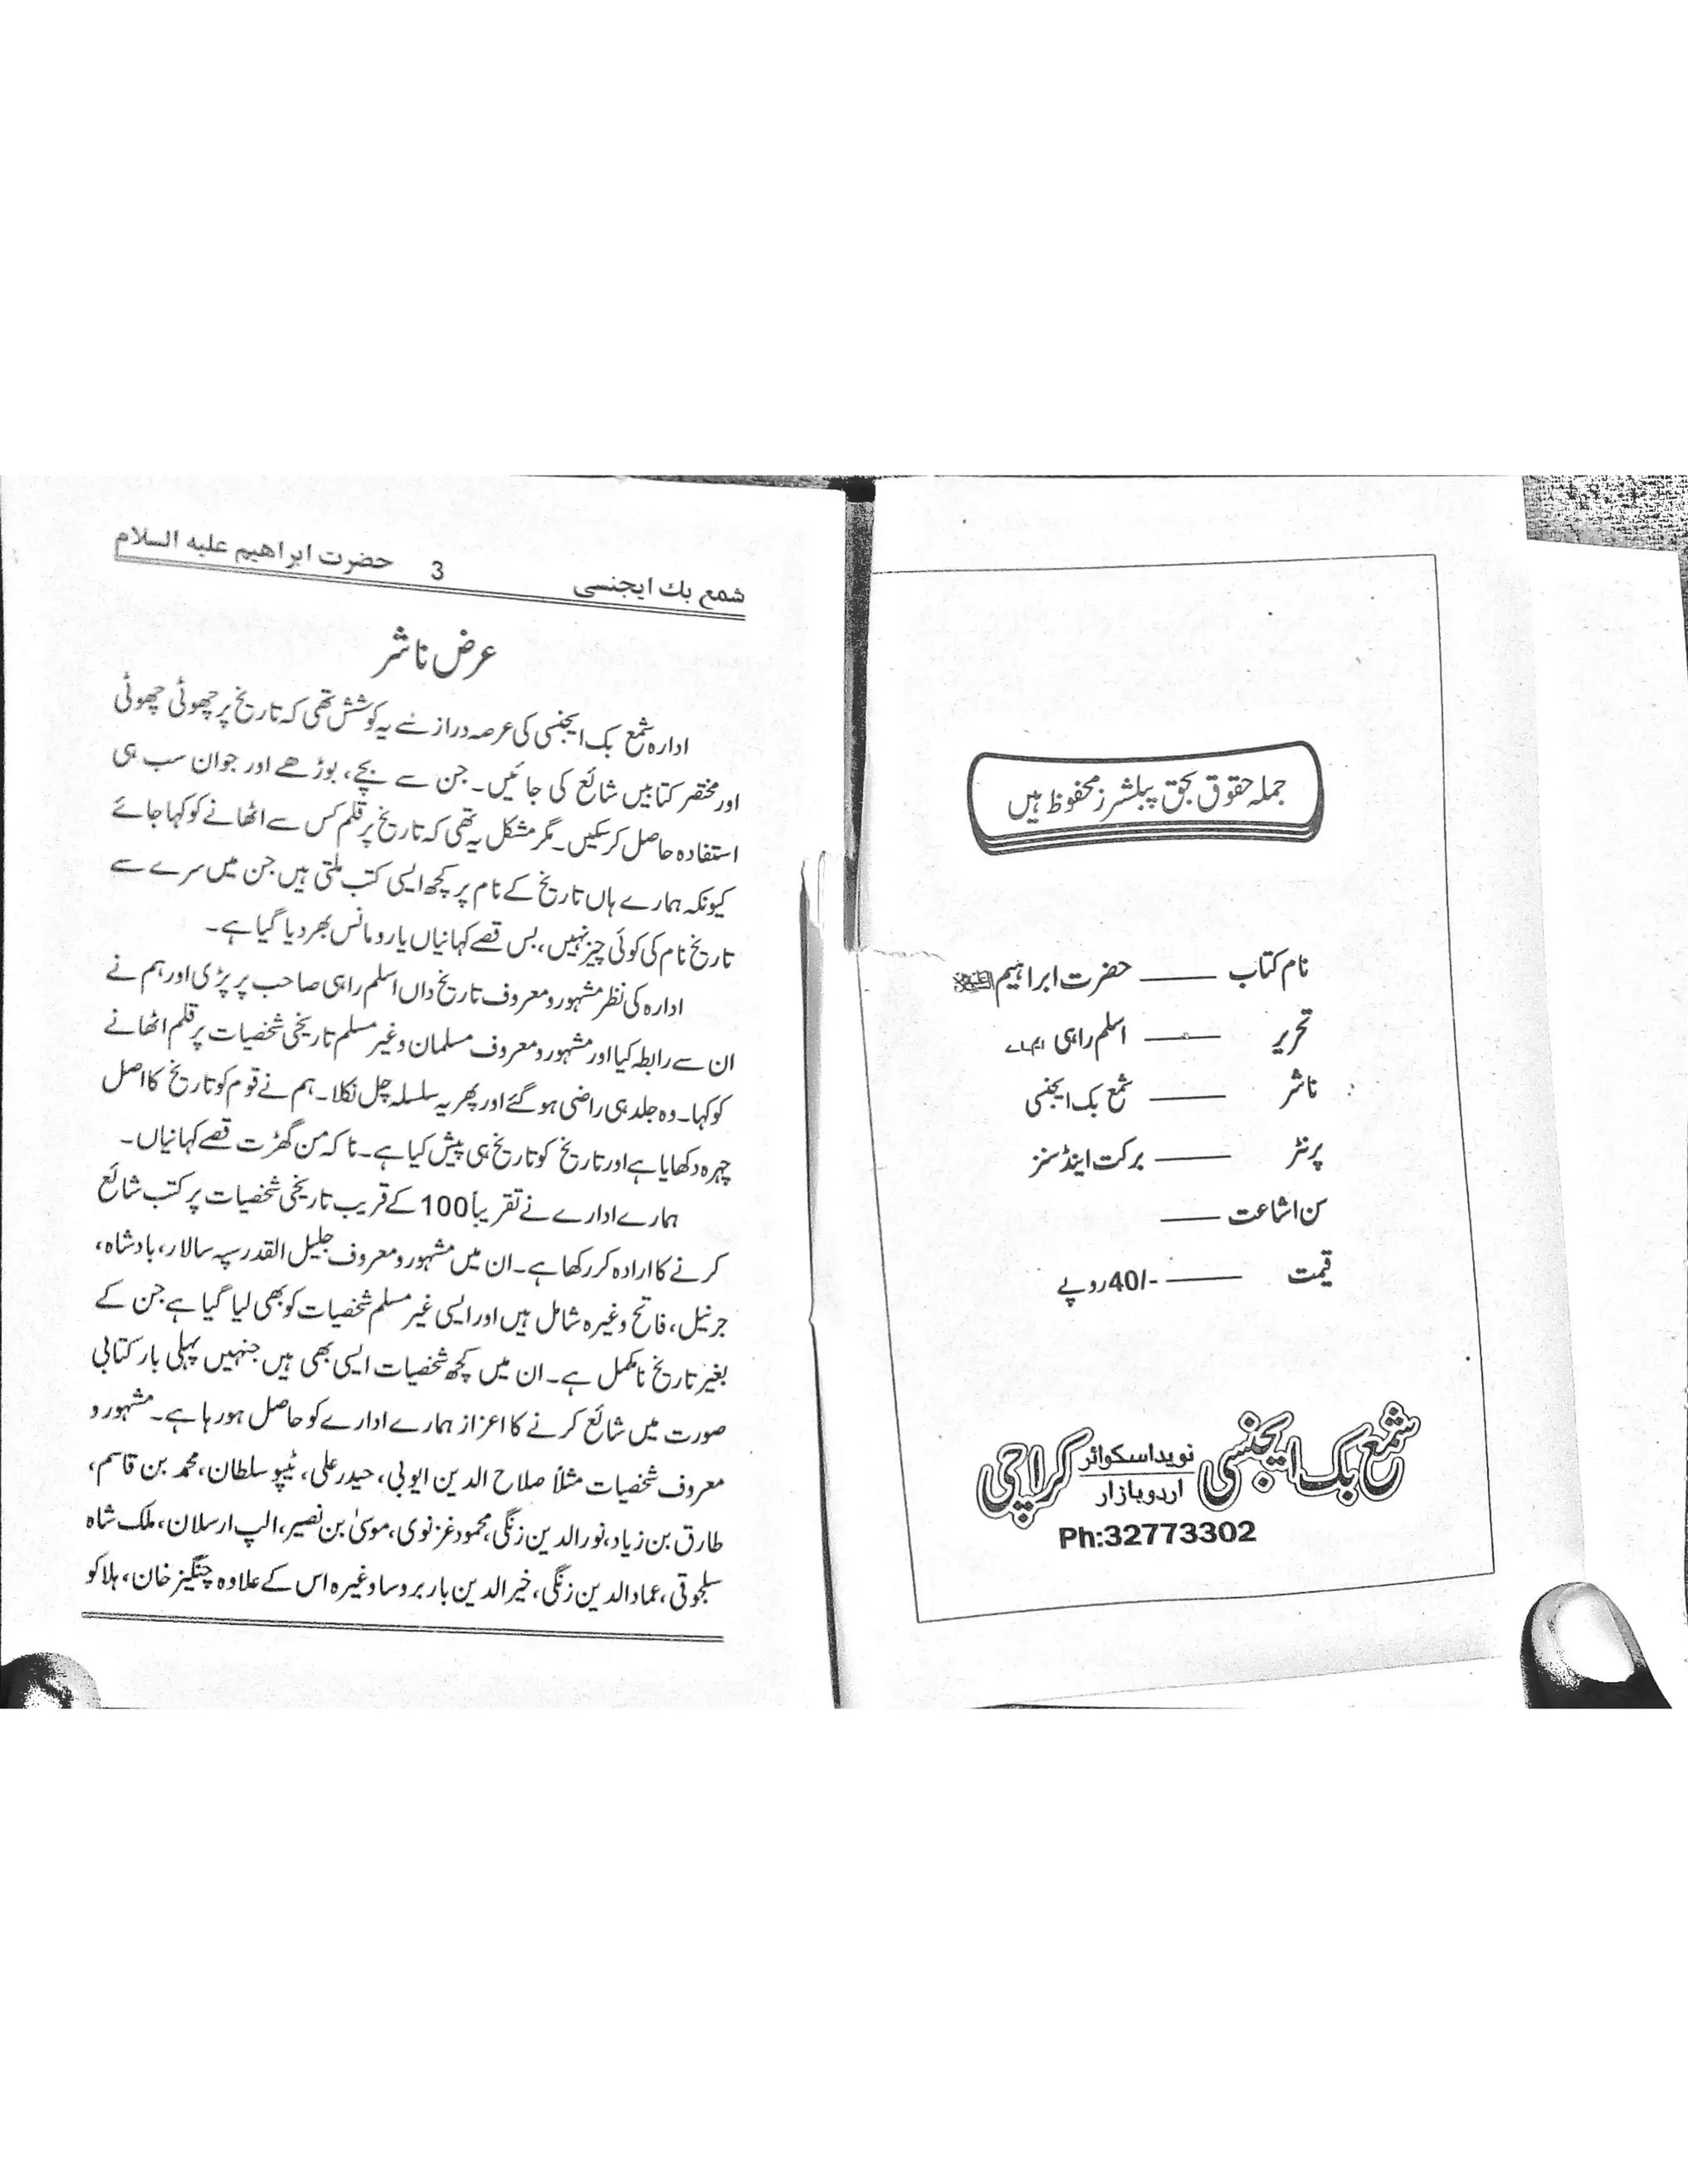 جملہ حقوق بحق پبلشرز محفوظ ہیں
نام کتاب —— حضرت ابراہیم
تحریر —— اسلم راہی ایم اے
ناشر —— شمع بک ایجنسی
پرنٹر —— برکت اینڈ سنز
سن اشاعت ——
قیمت —— -/40 روپے
شمع بک ایجنسی نوید اسکوائر اردو بازار کراچی
Ph:32773302
شمع بك ايجنسى 3 حضرت ابراهيم عليه السلام
عرض ناشر
ادارہ شمع بک ایجنسی کی عرصہ دراز سے یہ کوشش تھی کہ تاریخ پر چھوئی چھوئی
اور مختصر کتابیں شائع کی جائیں۔ جن سے بچے، بوڑھے اور جوان سب ہی
استفادہ حاصل کرسکیں۔ مگر مشکل یہ تھی کہ تاریخ پر قلم کس سے اٹھانے کو کہا جائے
کیونکہ ہمارے ہاں تاریخ کے نام پر کچھ ایسی کتب ملتی ہیں جن میں سرے سے
تاریخ نام کی کوئی چیز نہیں، بس قصے کہانیاں یا رومانس بھر دیا گیا ہے۔
ادارہ کی نظر مشہور و معروف تاریخ داں اسلم راہی صاحب پر پڑی اور ہم نے
ان سے رابطہ کیا اور مشہور و معروف مسلمان و غیر مسلم تاریخی شخصیات پر قلم اٹھانے
کو کہا۔ وہ جلد ہی راضی ہو گئے اور پھر یہ سلسلہ چل نکلا۔ ہم نے قوم کو تاریخ کا اصل
چہرہ دکھایا ہے اور تاریخ کو تاریخ ہی پیش کیا ہے۔ نا کہ من گھڑت قصے کہانیاں۔
ہمارے ادارے نے تقریباً 100 کے قریب تاریخی شخصیات پر کتب شائع
کرنے کا ارادہ کر رکھا ہے۔ ان میں مشہور و معروف جلیل القدر سپہ سالار، بادشاہ،
جرنیل، فاتح وغیرہ شامل ہیں اور ایسی غیر مسلم شخصیات کو بھی لیا گیا ہے جن کے
بغیر تاریخ نامکمل ہے۔ ان میں کچھ شخصیات ایسی بھی ہیں جنہیں پہلی بار کتابی
صورت میں شائع کرنے کا اعزاز ہمارے ادارے کو حاصل ہو رہا ہے۔ مشہور و
معروف شخصیات مثلاً صلاح الدین ایوبی، حیدر علی، ٹیپو سلطان، محمد بن قاسم،
طارق بن زیاد، نور الدین زنگی، محمود غزنوی، موسیٰ بن نصیر، الپ ارسلان، ملک شاہ
سلجوقی، عماد الدین زنگی، خیر الدین باربروسا وغیرہ اس کے علاوہ چنگیز خان، ہلاکو